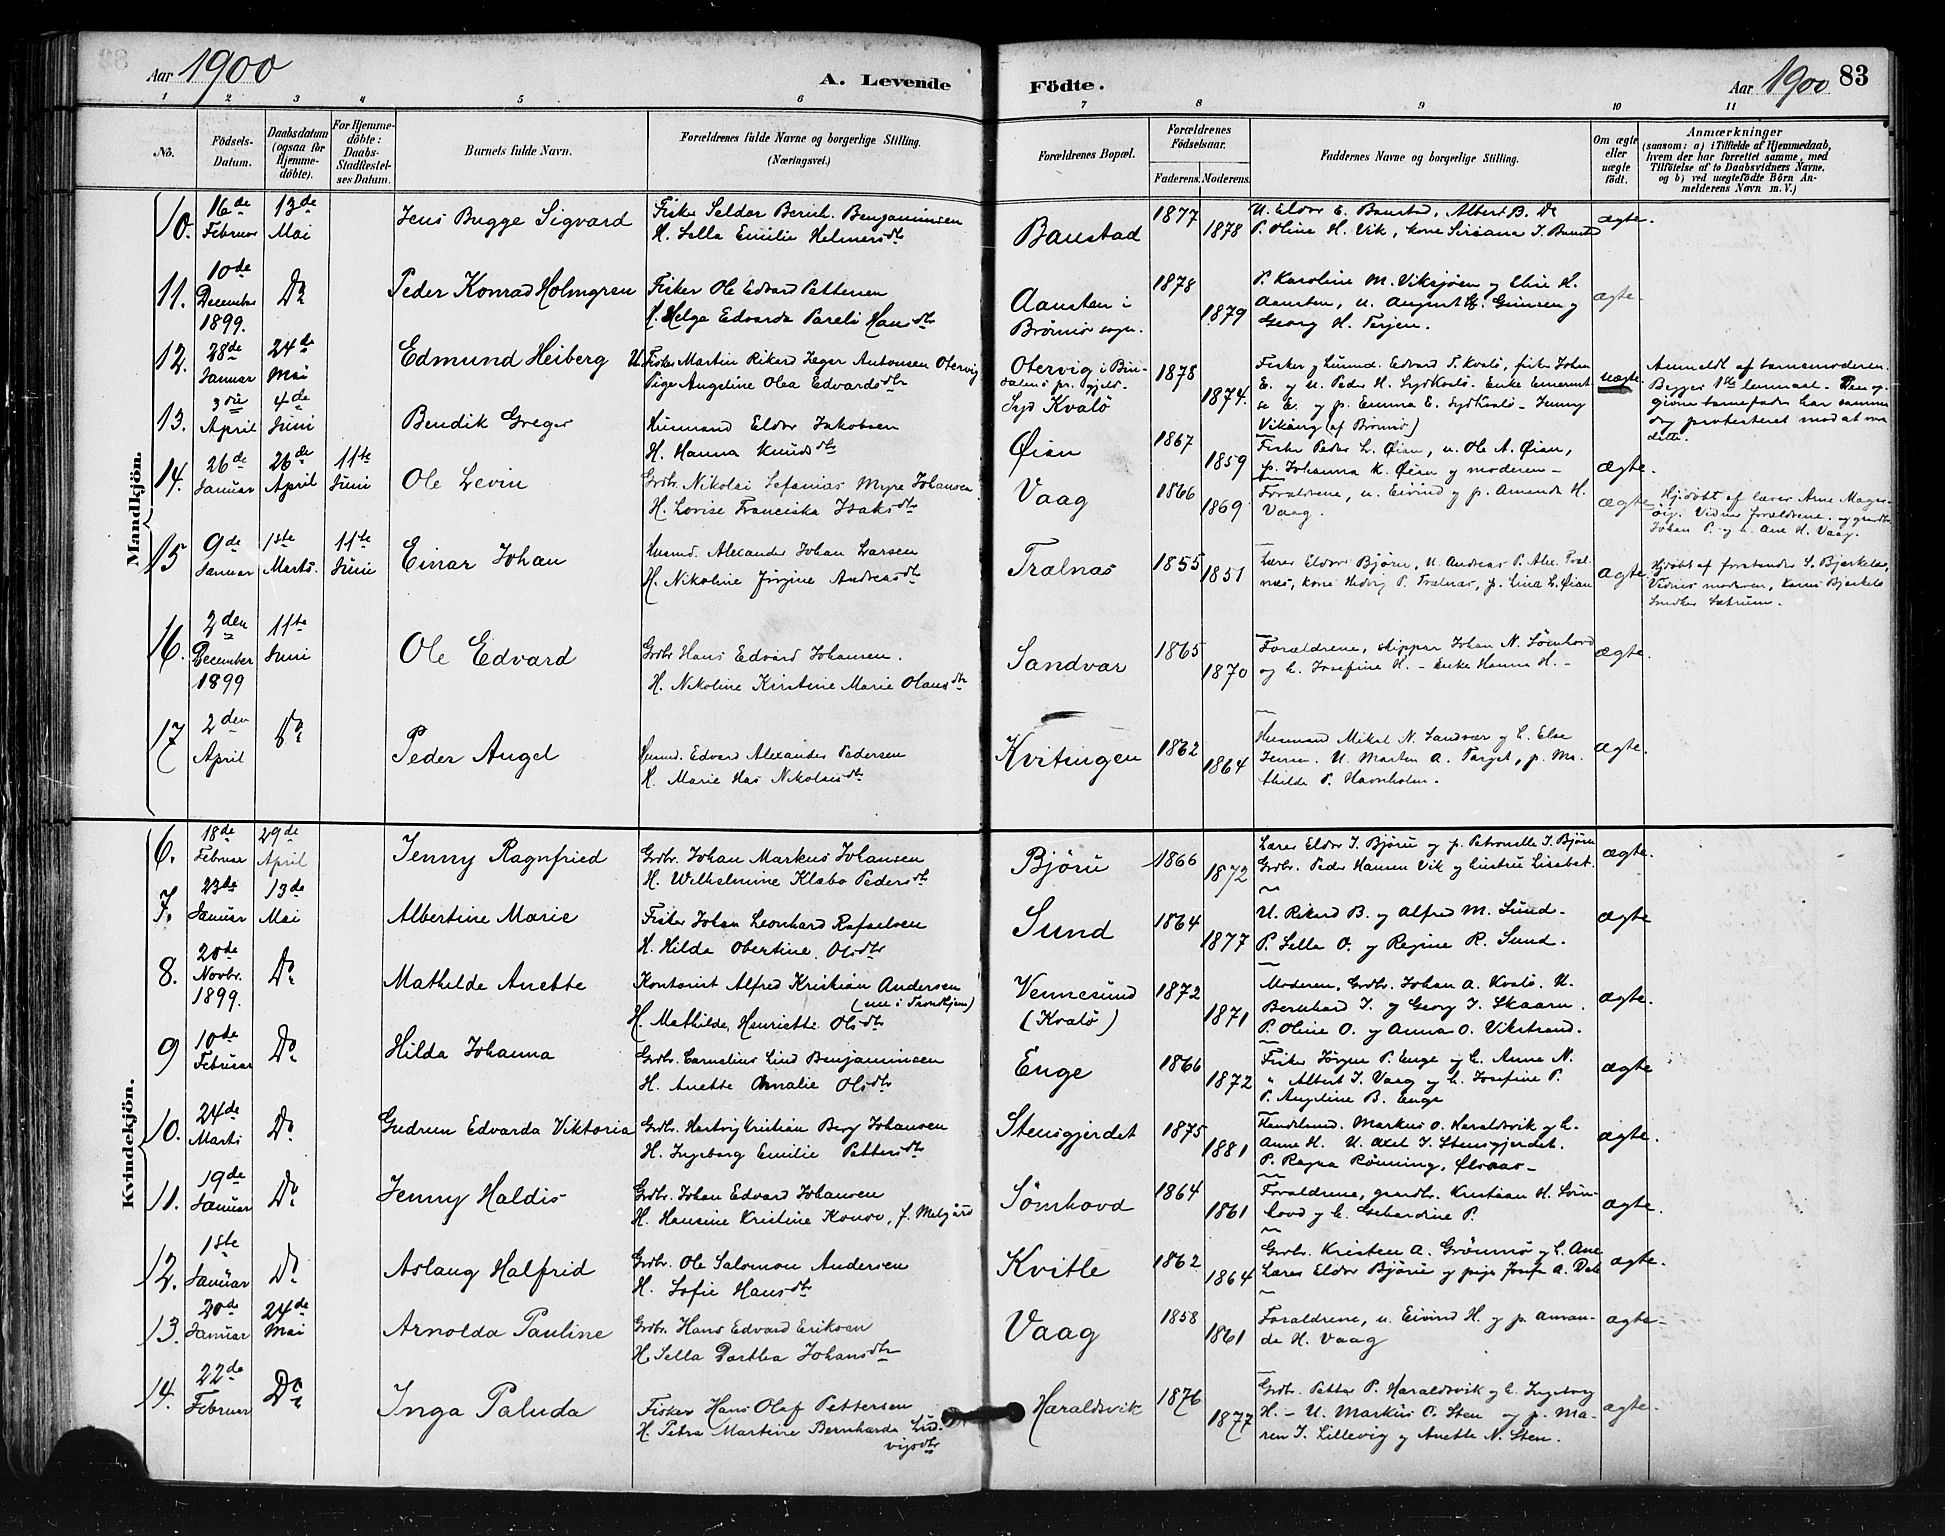 Aar 1900
A. Levende
Födte.
Aar 1900
83
1 2 3 4 5 6 7 8 9 10 11
Nô. Födsels-Datum. Daabsdatum (ogsaa for Hjemme-döbte). For Hjemme-döbte: Daabs-Stadfæstel-ses Datum. Barnets fulde Navn. Forældrenes fulde Navne og borgerlige Stilling. (Næringsvei.) Forældrenes Bopæl. Forældrenes Födselsaar. Faderens. Moderens. Faddernes Navne og borgerlige Stilling. Om ægte eller uægte födt. Anmærkninger (saasom: a) i Tilfælde af Hjemmedaab, hvem der har forrettet samme, med Tilföielse af to Daabsvidners Navne, og b) ved uægtefödte Börn An-melderens Navn m. V.)
Mandkjön.
10. 16de Februar 13de Mai Jens Bugge Sigvard Fisker Seldor Berich. Benjaminsen
H. Sella Emilie Helmersdtr Baustad 1877 1878 U. Eldor E. Baustad, Albert B. Do
P. Oline H. Vik, kone ægte.
11. 10de December 1899. Do Peder Konrad Holmgren Fisker Ole Edvard Pettersen
H. Helga Edvarda Pareli Hansdtr Aausten i Brönnö sogn. 1878 1879 P. Karoline M. Viksjöen y Eline H.
Aausten, u. August y
Georg H. Terjen. ægte.
12. 28de Januar 24de Mai Edmund Heiberg U. Fisker Martin Rikard Jæger Antonsen Otervig
Pige Angeline Olea Edvardsdtr Otervig i Bin-
dalens pr.gjeld -
Syd Kvalö 1878 1874. Fisker y Edvard T. Kvalö, fisker Johan
E. y u. Peder H. SydKvalö. Enke
E. y p. Emma E. SydKvalö - Jenny
Viking (af Brönnö) uægte Anmeldt af barnemoderen.
Begges 1ste leiermaal. Den op-
givne barnefader har
protesteret mod at være
dette.
13. 3die April 4de Juni Bendik Greger Husmand Eldor Jakobsen
H. Hanna Knudsdtr Öien 1867 1859 Fisker Peder L. Öien, u. Ole A. Öien,
p. Johanna K. Öien y moderen - ægte.
14. 26de Januar 26de April 11te Juni Ole Levin Grdbr. Nikolai Sefanias Myre Johansen
H. Lovise Franciska Isaksdtr Vaag 1866 1869 Forældrene, u. Eivind y p. Amanda H.
Vaag. ægte Hj.döbt af lærer Arne
Vidner forældrene y
Johan P. y h. Ane H. Vaag.
15 9de Januar 1ste Marts. 11te Juni Einar Johan Husmd. Alexander Johan Larsen
H. Nikoline Jörgine Andreasdtr Trælnæs 1855 1851 Lærer Eldor Björu, U. Andreas P.
kone Hedvig P. Trælnæs, p. Lina L. Öien ægte. Hjdöbt af forstander S. Bjerkelo,
Vidner moderen, Bjerkelo
Sætrum.
16. 2den December 1899 11te Juni Ole Edvard Grdbr Hans Edvard Johansen.
H. Nikoline Kirstine Marie Olausdtr Sandvær 1865 1870 Forældrene, skipper Johan N. Sömhovd
og h. Josefine H. - Enke Hanne H. - ægte.
17 2den April Do Peder Angel Husmd. Edvard Alexander Pedersen
H. Marie Nikolaisdtr Kvitingen 1862 1864 Husmand Mikal N. Sandvær y h. Else
Jensen. U. Marten A. Torget, p. Ma-
thilde P. Havnholm. ægte.
Kvindekjön.
6. 18de Februar 29de April Jenny Ragnfried Grdbr. Johan Markus Johansen
H. Wilhelmine Klæbo Pedersdtr Björu 1866 1872 Lærer Eldor I. Björu y p. Petronelle I. Björu
Grdbr. Peder Hansen Vik y hustru Lisabet. ægte.
7. 23de Januar 13de Mai Albertine Marie Fisker Johan Leonhard Rafaelsen
H. Hilda Obertine Olsdtr Sund 1864 1877 U. Rikard B. y Alfred M. Sund.
P. Sella O. y Regine R. Sund. ægte
8. 20de Novbr. 1899. Do Mathilde Anette Kontorist Alfred Kristian Andersen
(nu i Trondhjem)
H. Mathilde Henriette Olsdtr Vennesund
(Kvalö) 1872 1871 Moderen, Grdbr. Johan A. Kvalö. U.
Bernhard I. y Georg I. Skaarn.
P. Oline O. y Anna O. Vikstrand. ægte.
9 10de Februar Do Hilda Johanna Grdbr. Cornelius Lind Benjaminsen
H. Anette Amalie Olsdtr Enge 1866 1872 Fisker Jörgen P. Enge y h. Anna N.
" Albert I. Vaag y h. Josefine P.
P. Angeline B. Enge ægte
10. 24de Marts Do Gudrun Edvarda Viktoria Grdbr. Hartvig Kristian Berg Johansen
H. Ingeborg Emilie Pettersdtr Stensgjerdet 1875 1881 Handelsmd. Markus O. Haraldsvik y h.
Anne H. U. Axel I. Stensgjerdet.
P. Ragna Rönning, ægte.
11. 19de Januar Do Jenny Haldis Grdbr. Johan Edvard Johansen
H. Hansine Kristine Konov, f. Melgård Sömhovd 1864 1861 Forældrene, grædbr. Kristian H. Söm-
hovd y h. Gebardine P. ægte.
12. 1ste Januar Do Aslaug Halfrid Grdbr. Ole Salomon Andersen
H. Sofie Hansdtr Kvitle 1862 1864 Grdbr. Kristen A. Grönmö y h. Ane
Lærer Eldor Björu y pige Josefa A. ægte.
13. 20de Januar 24de Mai Arnolda Pauline Grdbr. Hans Edvard Eriksen
H. Sella Dorthea Johansdtr Vaag 1858 1861 Forældrene, u. Eivind H. y p. Aman-
da H. Vaag ægte -
14. 22de Februar Do Inga Paluda Fisker Hans Olaf Pettersen
H. Petra Martine Bernharda Lud-
vigsdtr Haraldsvik 1876 1877 Grdbr. Petter P. Haraldsvik y h. Ingeborg
H. - U. Markus P. Sten y p. Ma-
ren I. Lillevig y Anette N. Sten. ægte.